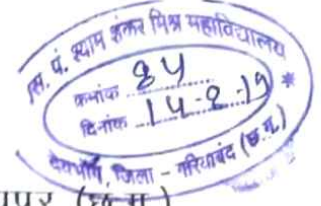 स. पं. श्याम शंकर मिश्र महाविद्यालय *
क्रमांक 84
दिनांक 14-2-19
देवभोग, जिला - गरियाबंद (छ.ग.)
(छ.ग.)